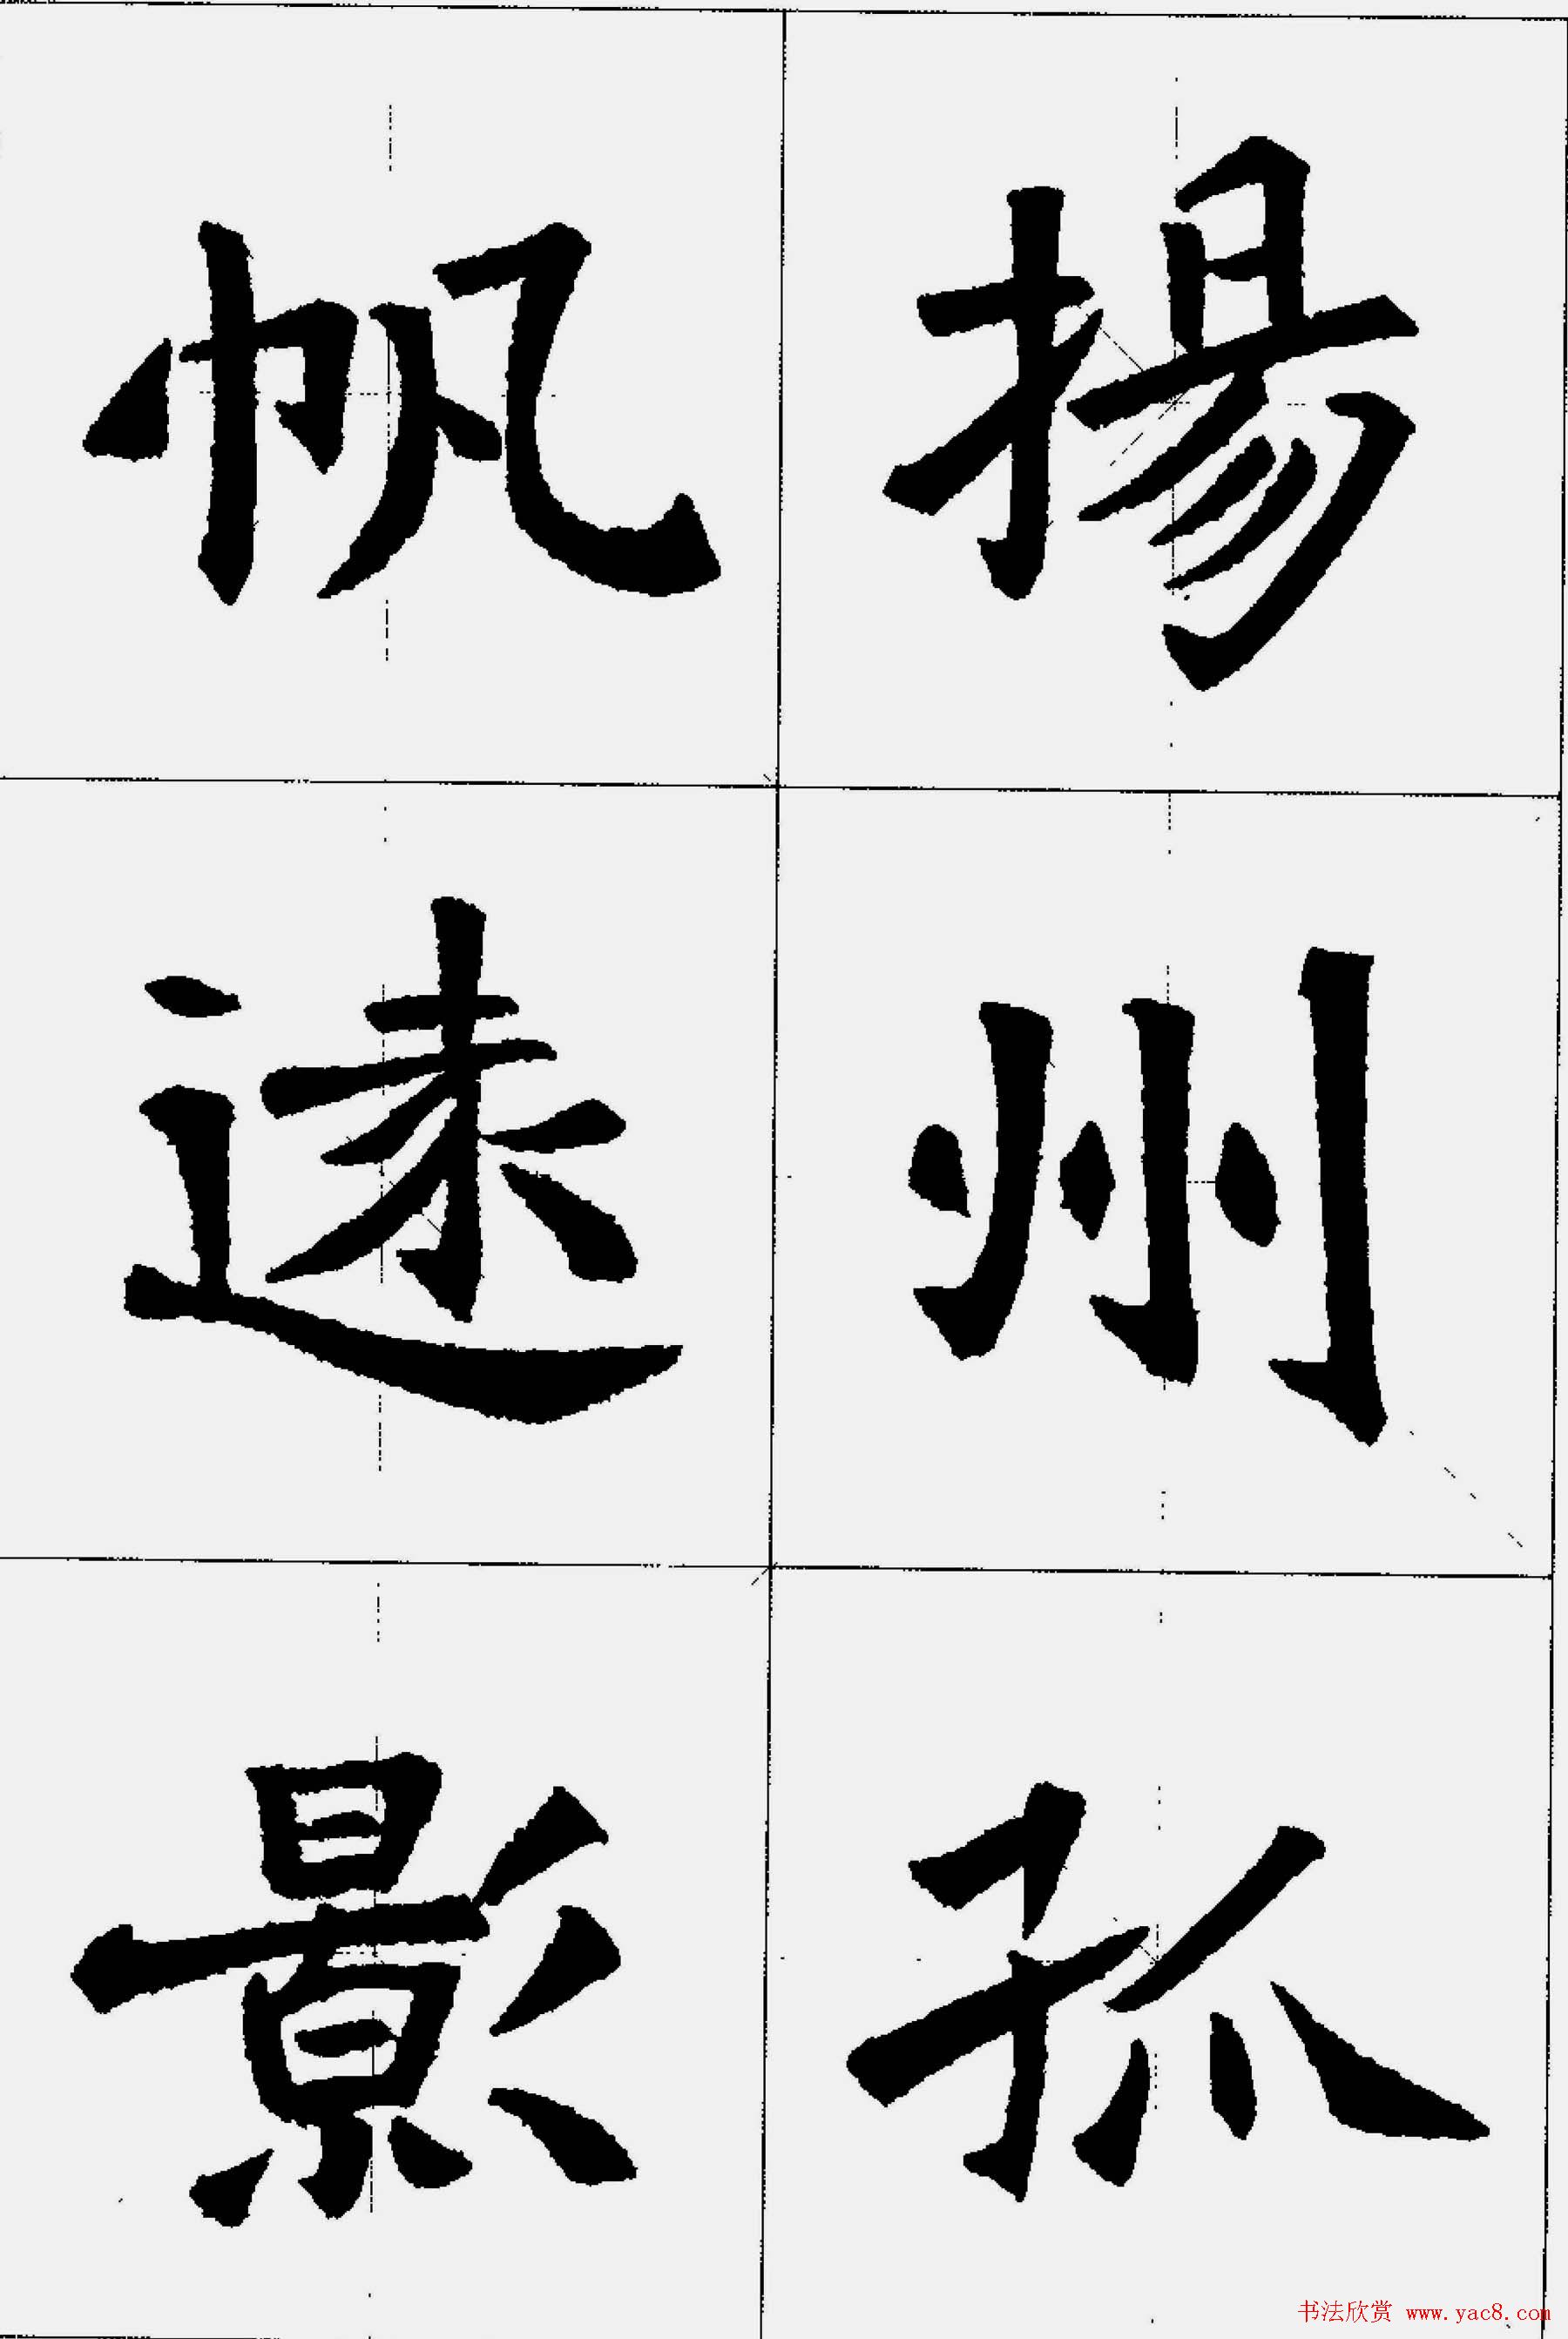 揚州孤
帆遠景
书法欣赏 www.yac8.com